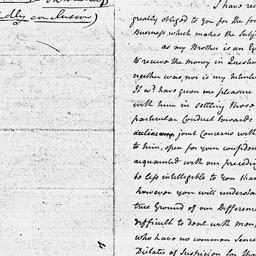 (dly conclusion)
I have rec
greatly obliged to you for the fro
Business which makes the Subj
as my Brother is an Ex
to receive the money in Question
neither was, nor is my Intention
It wd. have given me pleasure
with him in settling those
particular Conduct towards
joint Concerns with
to him, open for your confiden
acquainted with our preceding
be less intelligible to you than
however you will understan
true Ground of our Difference
difficult to deal with Men,
who have no common Sense
Dictates of Suspicion for the